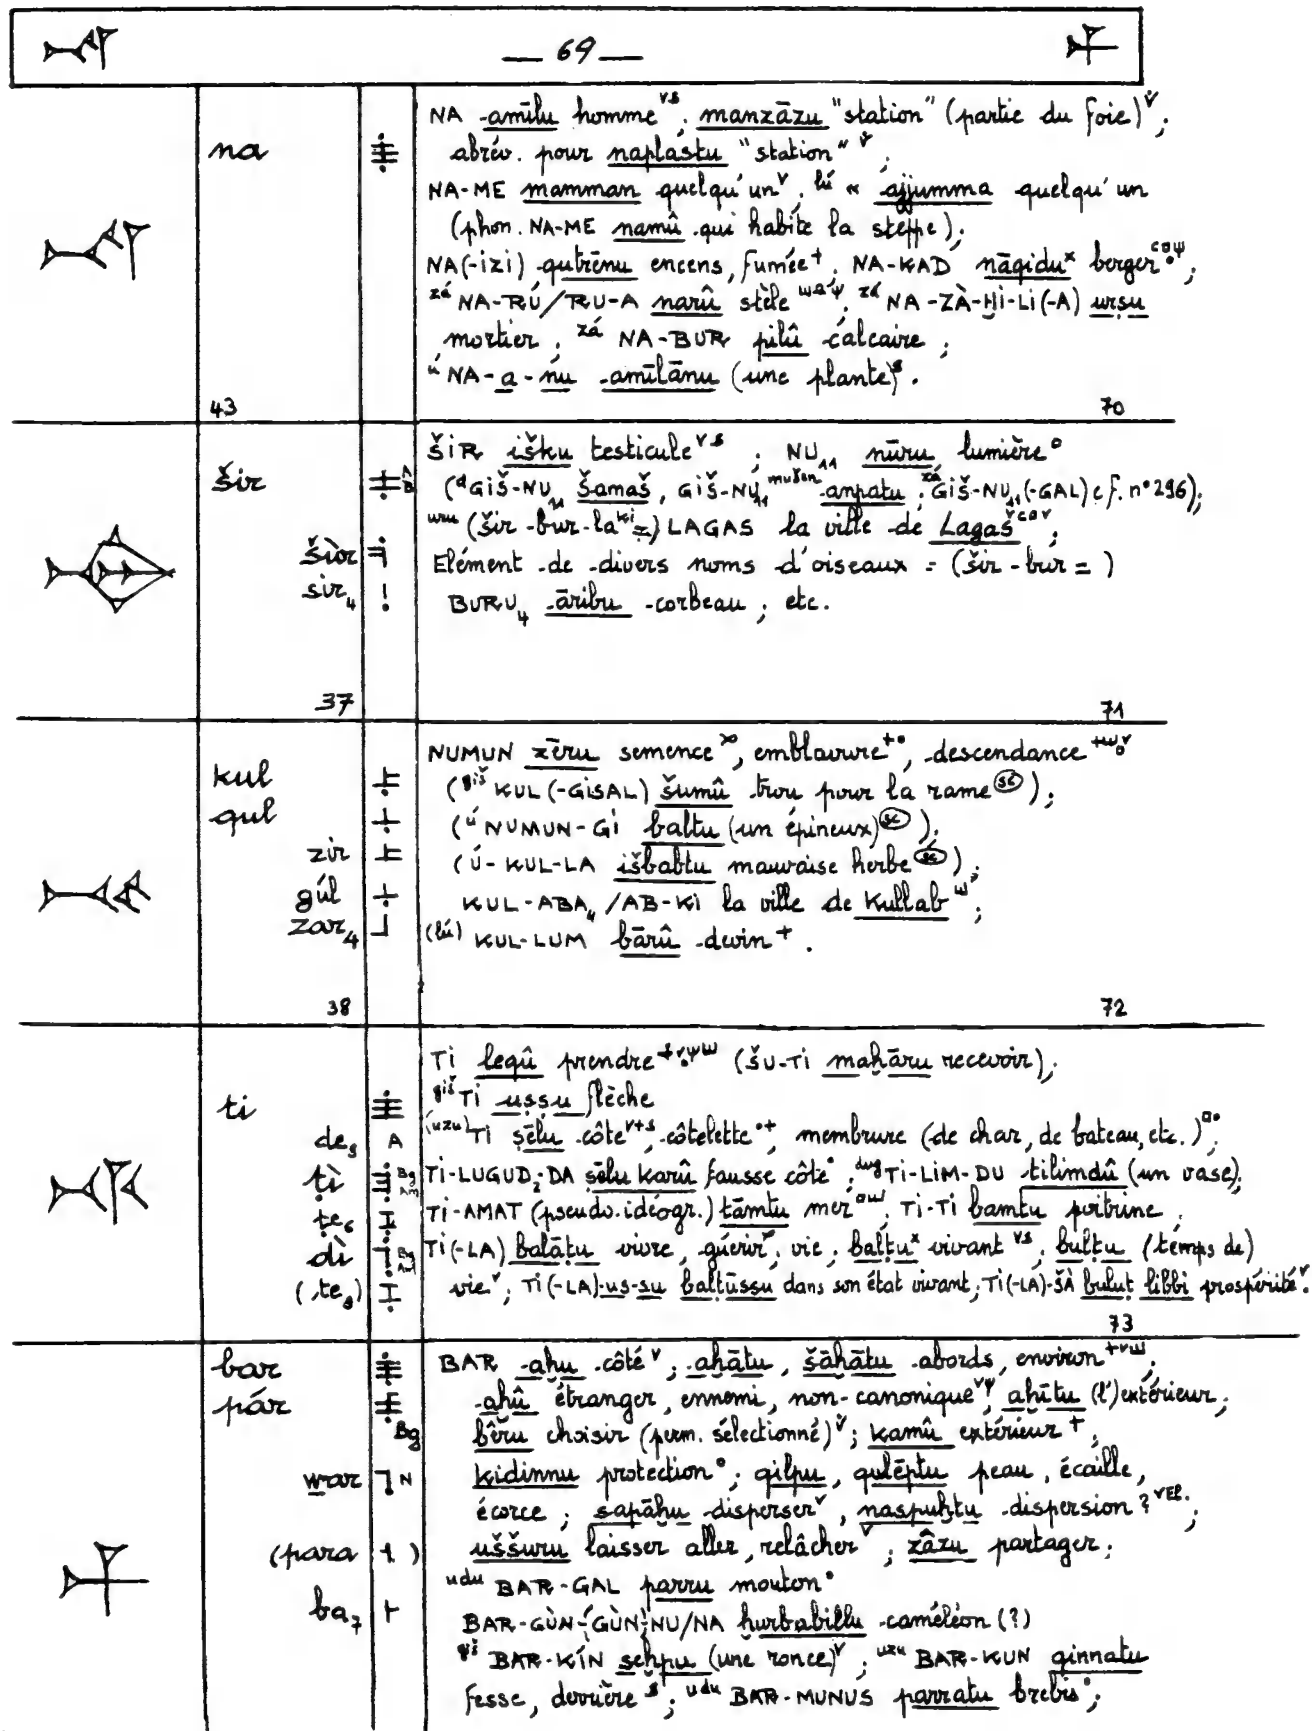 — 69 —
na
NA amīlu homme ; manzāzu "station" (partie du foie) ;
abrév. pour naplastu "station" ;
NA-ME mamman quelqu'un ; lú " ajjumma quelqu'un
(phon. NA-ME namû qui habite la steppe) ;
NA(-izi) qutrēnu encens, fumée ; NA-KAD nāqidu berger ;
zá NA-RÚ/RU-A narû stèle ; zá NA-ZÀ-ḪI-LI(-A) urṣu
mortier ; zá NA-BUR pilû calcaire ;
ú NA-a-nu amīlānu (une plante) .
43 70
šir
šìr
sir₄
ŠIR išku testicule ; NU₁₁ nūru lumière
(d GIŠ-NU₁₁ Šamaš, GIŠ-NU₁₁ mušen anpatu ; zá GIŠ-NU₁₁(-GAL) cf. n° 296) ;
uru (šir-bur-la ki =) LAGAS la ville de Lagaš ;
Elément de divers noms d'oiseaux = (šir-bur = )
BURU₄ āribu corbeau ; etc.
37 71
kul
qul
zir
gúl
zar₄
NUMUN zēru semence , emblavure , descendance
(giš KUL(-GISAL) šumû trou pour la rame ) ;
(ú NUMUN-GI baltu (un épineux) ) ;
(Ú-KUL-LA išbabtu mauvaise herbe ) ;
KUL-ABA₄/AB-KI la ville de Kullab ;
(lú) KUL-LUM bārû devin .
38 72
ti
de₅
ṭì
ṭe₆
dì
(te₉)
TI leqû prendre (ŠU-TI maḫāru recevoir) ;
giš TI uṣṣu flèche
(uzu) TI ṣēlu côte , côtelette , membrure (de char, de bateau, etc.) ;
TI-LUGUD₂-DA ṣēlu karû fausse côte ; dug TI-LIM-DU tilimdû (un vase) ;
TI-AMAT (pseudo-idéogr.) tāmtu mer ; TI-TI bamtu poitrine ;
TI(-LA) balāṭu vivre, guérir , vie ; balṭu vivant ; bulṭu (temps de)
vie ; TI(-LA)-us-su balṭūssu dans son état vivant ; TI(-LA)-ŠÀ buluṭ libbi prospérité .
73
bar
pár
war
(para )
ba₇
BAR aḫu côté ; aḫātu , šāḫātu abords, environ ;
aḫû étranger, ennemi, non-canonique ; aḫītu (l')extérieur ;
bêru choisir (perm. sélectionné) ; kamû extérieur ;
kidinnu protection ; qilpu, qulēptu peau, écaille,
écorce ; sapāḫu disperser , naspuḫtu dispersion ? ;
uššuru laisser aller, relâcher ; zâzu partager ;
udu BAR-GAL parru mouton
BAR-GÙN-(GÙN)-NU/NA ḫurbabillu caméléon (?)
giš BAR-KÍN seḫpu (une ronce) ; uzu BAR-KUN qinnatu
fesse, derrière ; udu BAR-MUNUS parratu brebis ;